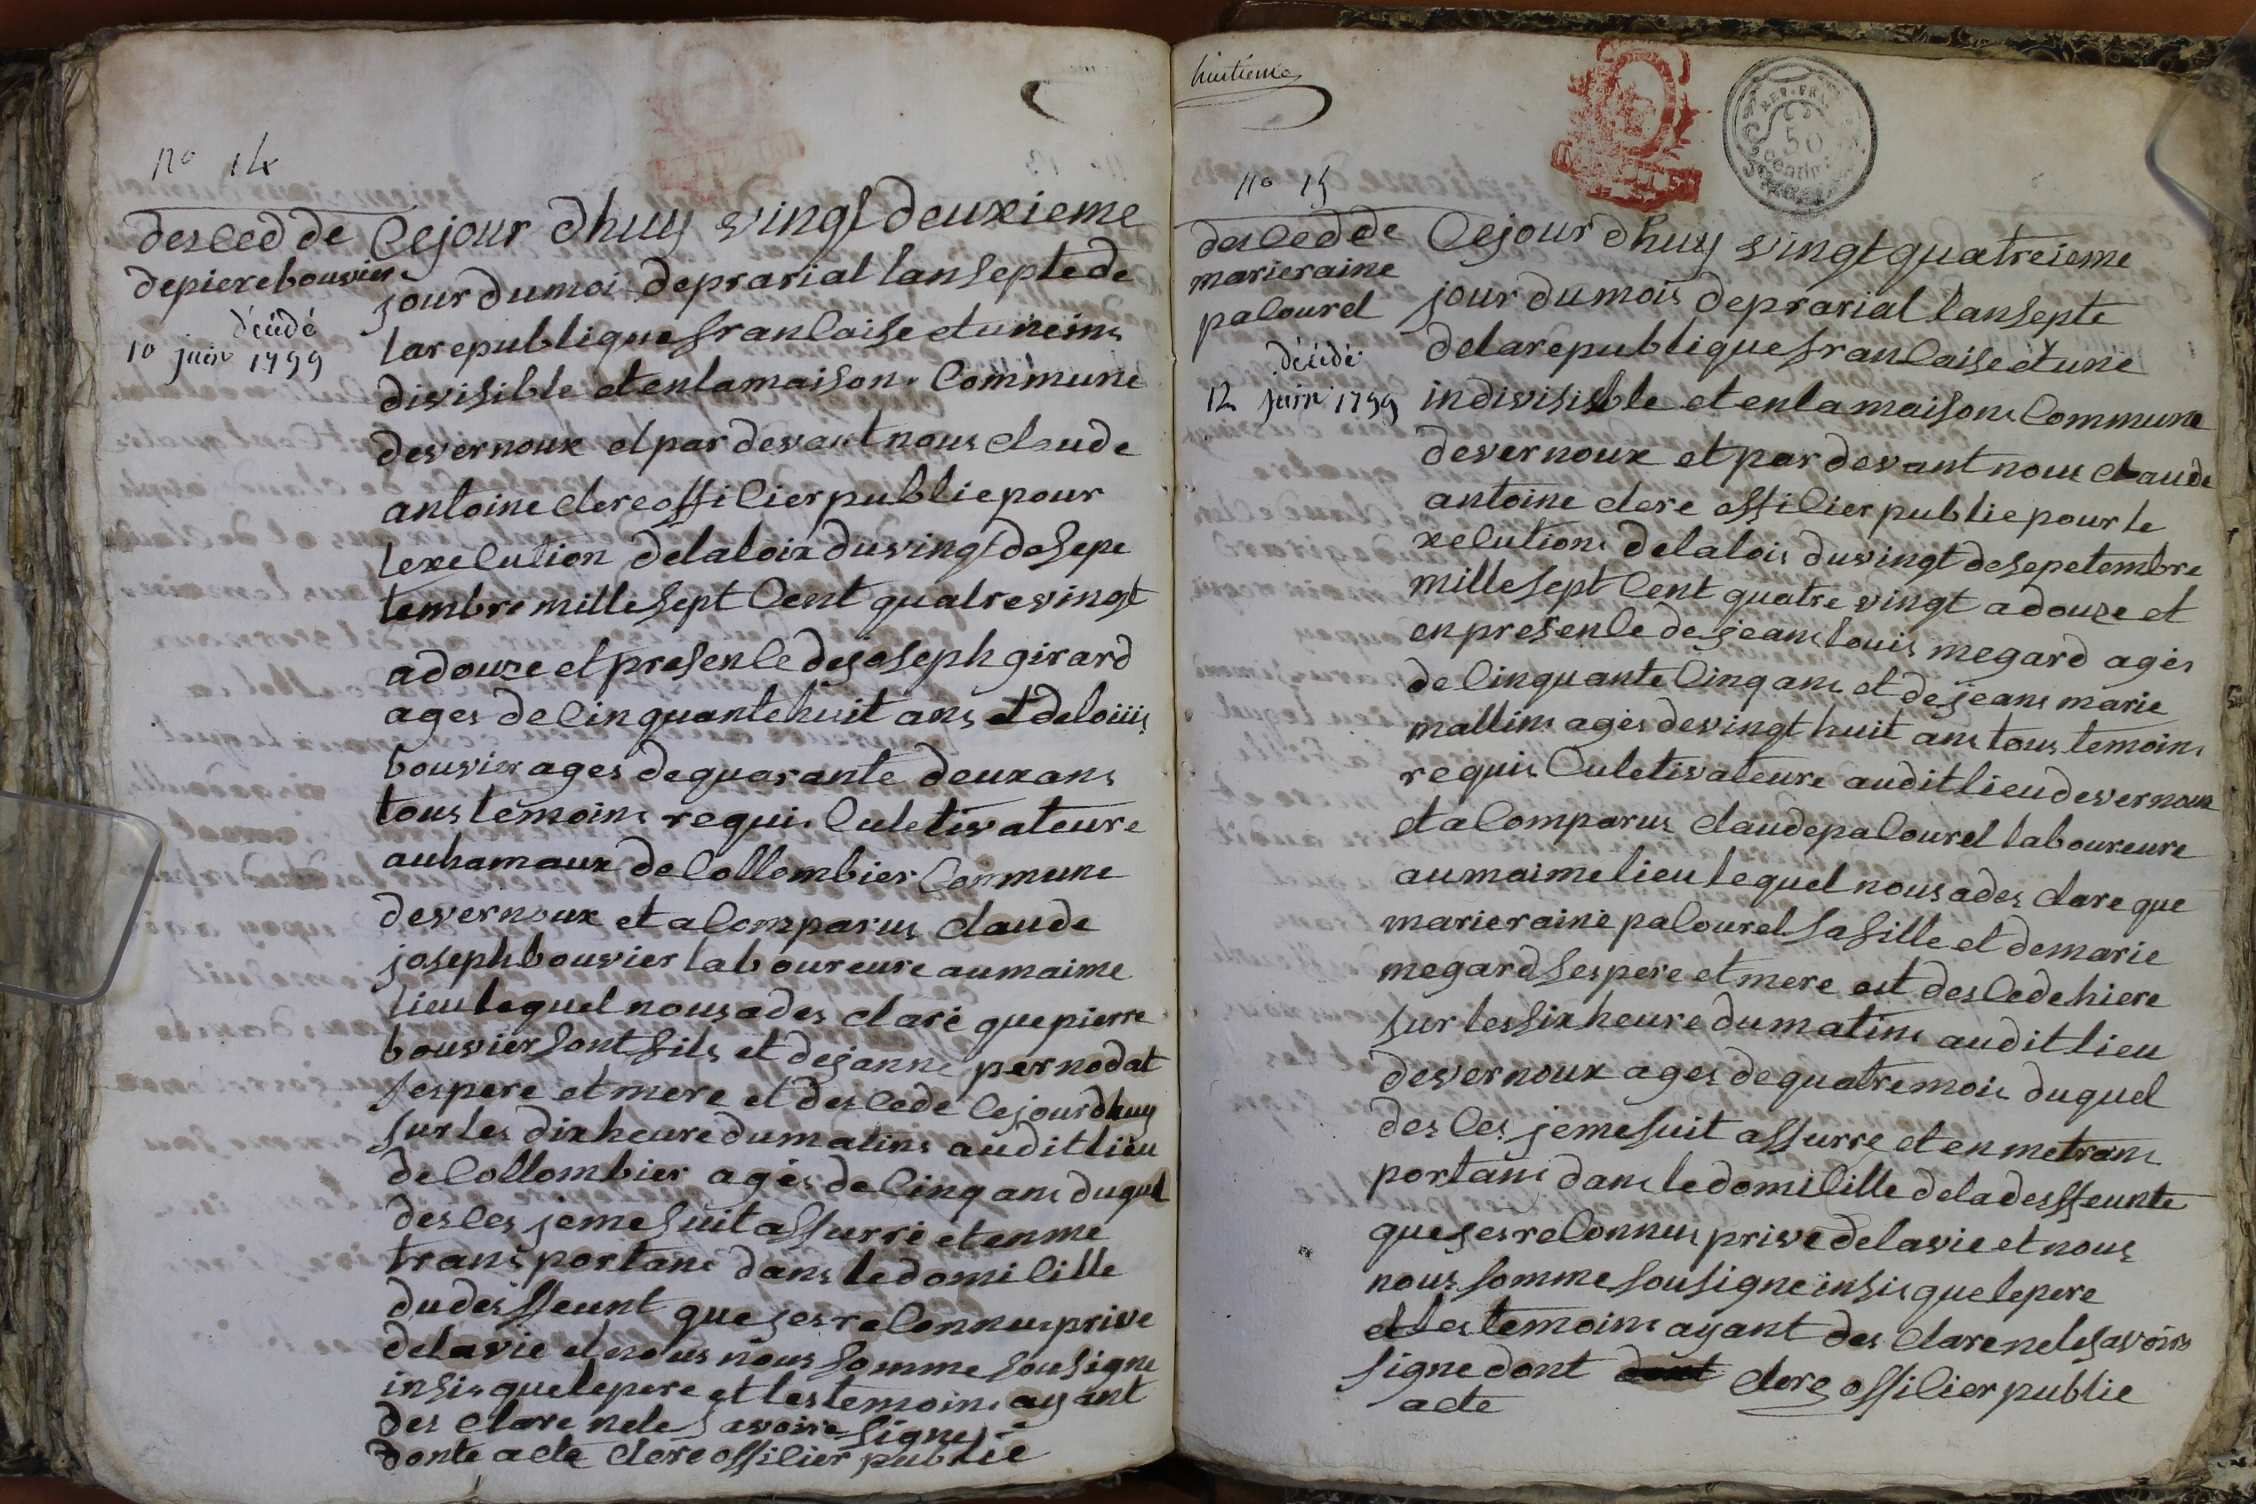 no 14
desced de
depiere bouvier
décédé
10 juin 1799
Cejour dhuy vingt deuxieme
jour dumoi deprarial lansepte de
larepublique francaise etune ins
divisible etenlamaison Commune
devernoux et par devant nous claude
antoine clerc officier public pour
lexecution delaloix du vingt de sepe
tembre mille sept Cent quatrevingt
adouze et presence dejoseph girard
ages de Cinquantehuit ans et deloiiis
bouvier ages dequarante deux ans
tous temoins requis Culetivateure
auhamaux de Collombier Commune
devernoux et a Comparus claude
joseph bouvier laboureure aumaime
lieu lequel nousades claré que pierre
bouvier sont fils et dejanne pernodat
sespere etmere et descede cejourdhuy
sur les dix heure dumatins audit lieu
de Collombier agés de Cinq ans duquel
desces jemesuit assurré etenme
transportans dans ledomicille
dudesffeunt quejesreconnus prive
delavie et nous nous somme sousigne
insis quelepere et lestemoins ayant
des clare nele savoire signe
donte acte clerc officier public
huitieme
REP. FRA.
50
centim.
no 15
descedde
marieraine
pacouret
décédé
12 juin 1799
Cejour dhuy vingt quatreieme
jour dumois deprarial lansepte
delarepublique francaise etune
indivisible et enlamaisons Commune
devernoux et par devant nous claude
antoine clerc officier public pour le
xecutions delalois duvingt desepetembre
mille sept Cent quatre vingt adouze et
enpresence dejeans louis megard agés
de Cinquante Cinq ans et dejeans marie
mallins agés devingt huit ans tous temoins
requis Culetivateure audit lieu devernoux
et a Comparus claude pacouret laboureure
aumaime lieu lequel nousades clare que
marieraine pacouret safille et demarie
megard sespere et mere est descede hiere
sur les six heure dumatins audit lieu
devernoux ages dequatremois duquel
desces jemesuit assurre et enmetrans
portans dans ledomicille deladesffeunte
quejesreconnus prive delavie et nous
nous somme sousigne insis quelepere
et les temoins ayant des clarenelesavoire
signe dont clerc officier public
acte